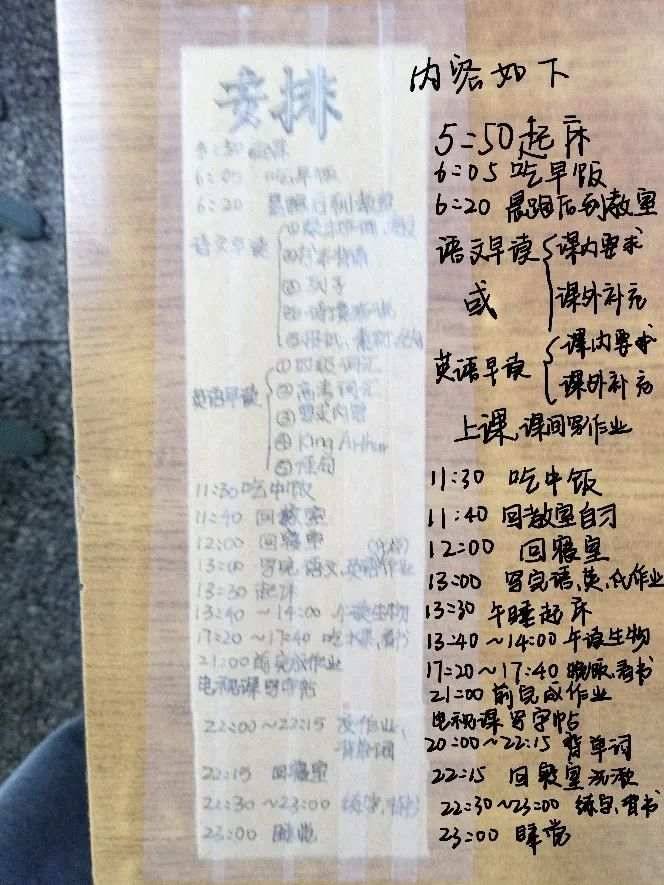 安排
6:05 吃早饭
6:20 晨跑后到教室
语文早读
英语早读
①四级词汇
②高考词汇
③要求内容
④King Arthur
⑤佳句
11:30 吃中饭
11:40 回教室
12:00 回寝室
13:00 写完语文,英语作业
13:30 起床
13:40~14:00 午读生物
17:20~17:40
21:00前完成作业
电视课写字帖
22:00~22:15
背单词
22:15 回寝室
23:00 睡觉
内容如下
5:50起床
6:05 吃早饭
6:20 晨跑后到教室
语文早读 课内要求
课外补充
或
英语早读 课内要求
课外补充
上课,课间写作业
11:30 吃中饭
11:40 回教室自习
12:00 回寝室
13:00 写完语,英,化作业
13:30 午睡起床
13:40~14:00 午读生物
17:20~17:40 晚饭,看书
21:00 前完成作业
电视课写字帖
20:00~22:15 背单词
22:15 回寝室洗漱
22:30~23:00 练字,看书
23:00 睡觉